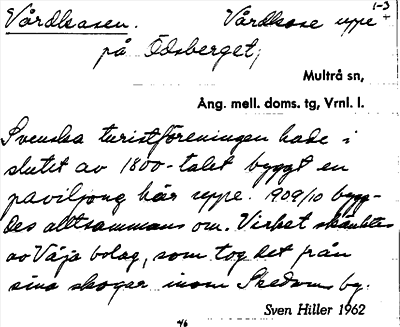 Vårdkasen. Vårdkase uppe 1-3 +
på Ödsberget;
Multrå sn,
Ång. mell. doms. tg, Vrnl. l.
Svenska turistföreningen hade i
slutet av 1800-talet byggt en
paviljong här uppe. 1909/10 bygg-
des alltsammans om. Virket skänktes
av Väja bolag, som tog det från
sina skogar inom Skedoms by.
Sven Hiller 1962
46